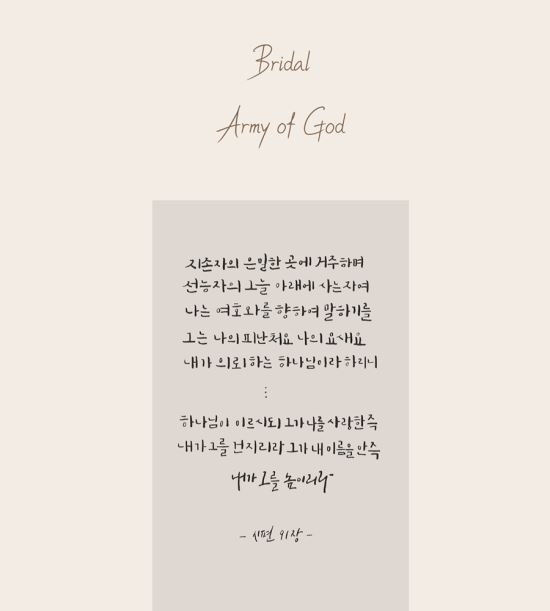 Bridal
Army of God
지존자의 은밀한 곳에 거주하며
전능자의 그늘 아래에 사는자여
나는 여호와를 향하여 말하기를
그는 나의 피난처요 나의 요새요
내가 의뢰하는 하나님이라 하리니
⋮
하나님이 이르시되 그가 나를 사랑한즉
내가 그를 건지리라 그가 내 이름을 안즉
내가 그를 높이리라"
- 시편 91장 -